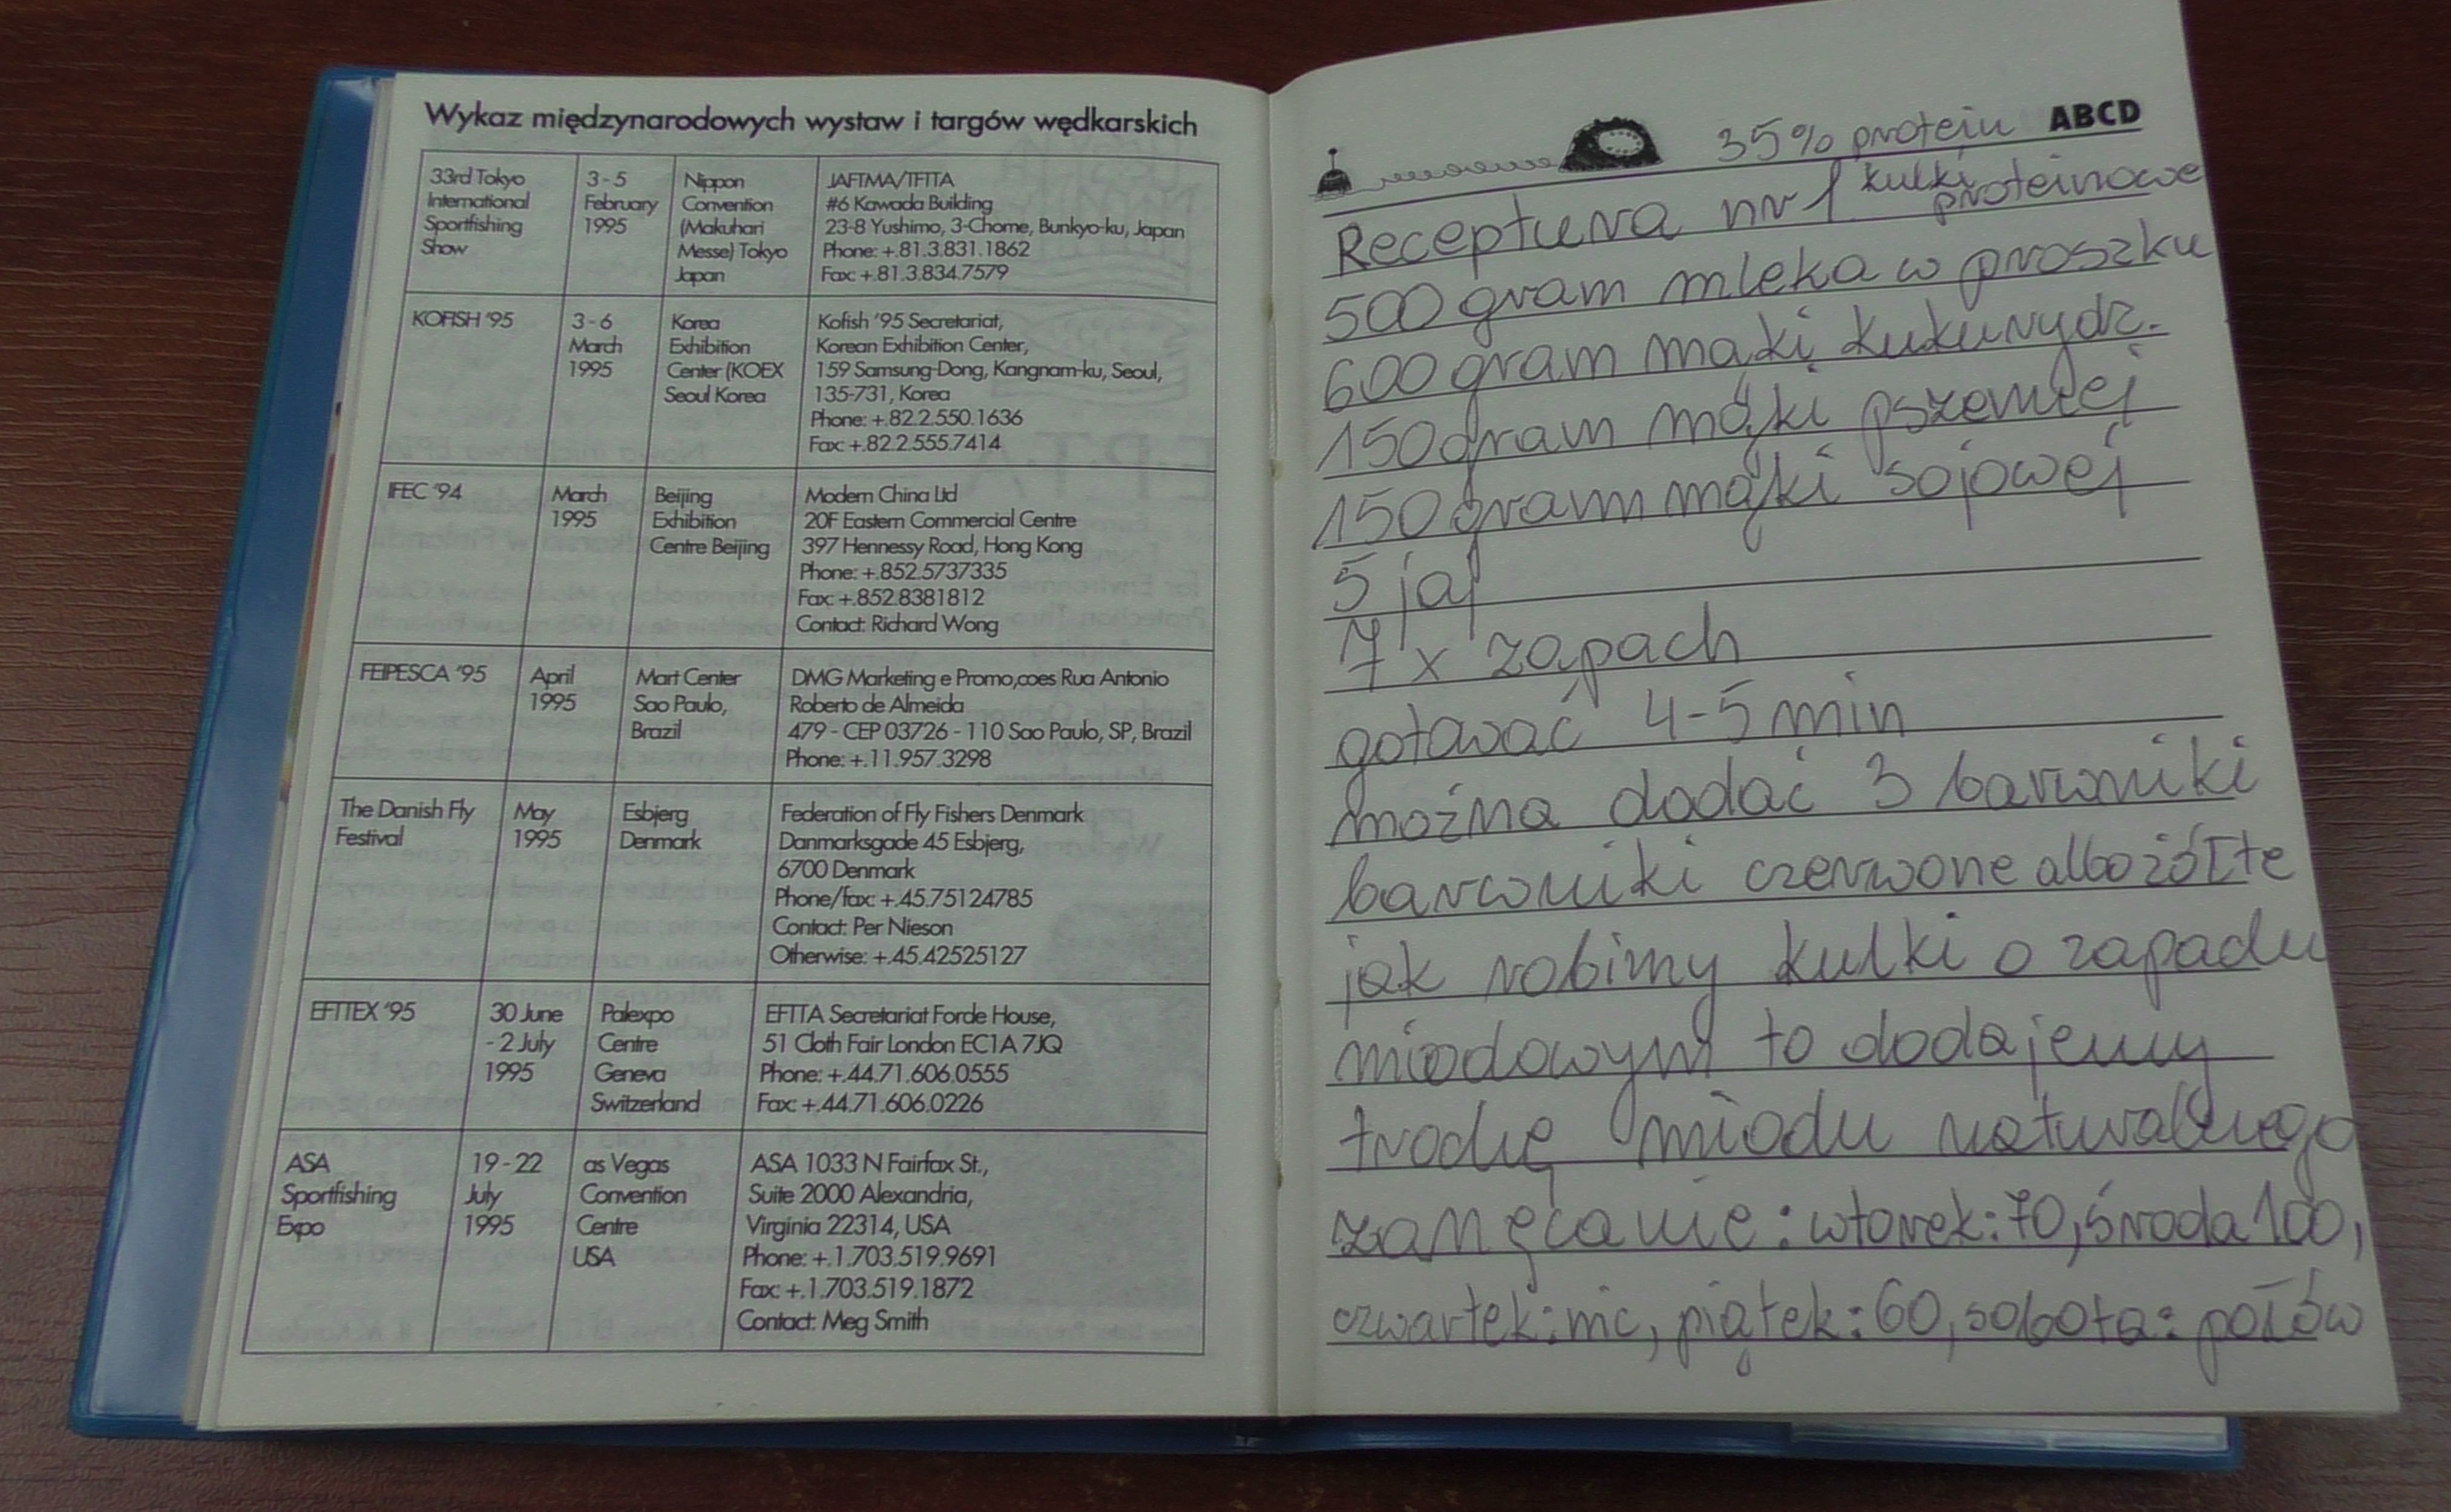 Wykaz międzynarodowych wystaw i targów wędkarskich
33rd Tokyo
International
Sportfishing
Show
3-5
February
1995
Nippon
Convention
(Makuhari
Messe) Tokyo
Japan
JAFTMA/TFTTA
#6 Kawada Building
23-8 Yushimo, 3-Chome, Bunkyo-ku, Japan
Phone: +.81.3.831.1862
Fax: +.81.3.834.7579
KOFISH '95
3-6
March
1995
Korea
Exhibition
Center (KOEX
Seoul Korea
Kofish '95 Secretariat,
Korean Exhibition Center,
159 Samsung-Dong, Kangnam-ku, Seoul,
135-731, Korea
Phone: +.82.2.550.1636
Fax: +.82.2.555.7414
IFEC '94
March
1995
Beijing
Exhibition
Centre Beijing
Modern China Ltd
20F Eastern Commercial Centre
397 Hennessy Road, Hong Kong
Phone: +.852.5737335
Fax: +.852.8381812
Contact: Richard Wong
FEIPESCA '95
April
1995
Mart Center
Sao Paulo,
Brazil
DMG Marketing e Promo,coes Rua Antonio
Roberto de Almeida
479 - CEP 03726 - 110 Sao Paulo, SP, Brazil
Phone: +.11.957.3298
The Danish Fly
Festival
May
1995
Esbjerg
Denmark
Federation of Fly Fishers Denmark
Danmarksgade 45 Esbjerg,
6700 Denmark
Phone/fax: +.45.75124785
Contact: Per Nieson
Otherwise: +.45.42525127
EFTTEX '95
30 June
- 2 July
1995
Palexpo
Centre
Geneva
Switzerland
EFTTA Secretariat Forde House,
51 Cloth Fair London EC1A 7JQ
Phone: +.44.71.606.0555
Fax: +.44.71.606.0226
ASA
Sportfishing
Expo
19-22
July
1995
as Vegas
Convention
Centre
USA
ASA 1033 N Fairfax St.,
Suite 2000 Alexandria,
Virginia 22314, USA
Phone: +.1.703.519.9691
Fax: +.1.703.519.1872
Contact: Meg Smith
35% protein ABCD
Receptura nr 1 kulki proteinowe
500 gram mleka w proszku
600 gram mąki kukurydz.
150 gram mąki pszennej
150 gram mąki sojowej
5 jaj
7 x zapach
gotować 4-5 min
można dodać 3 barwniki
barwniki czerwone albo żółte
jak robimy kulki o zapachu
miodowym to dodajemy
trochę miodu naturalnego
zanęcanie: wtorek: 70, środa 100,
czwartek: nic, piątek: 60, sobota: połów